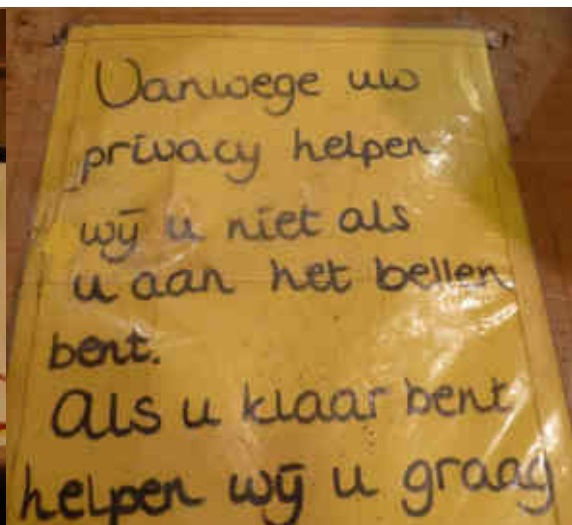 Vanwege uw
privacy helpen
wij u niet als
u aan het bellen
bent.
Als u klaar bent
helpen wij u graag